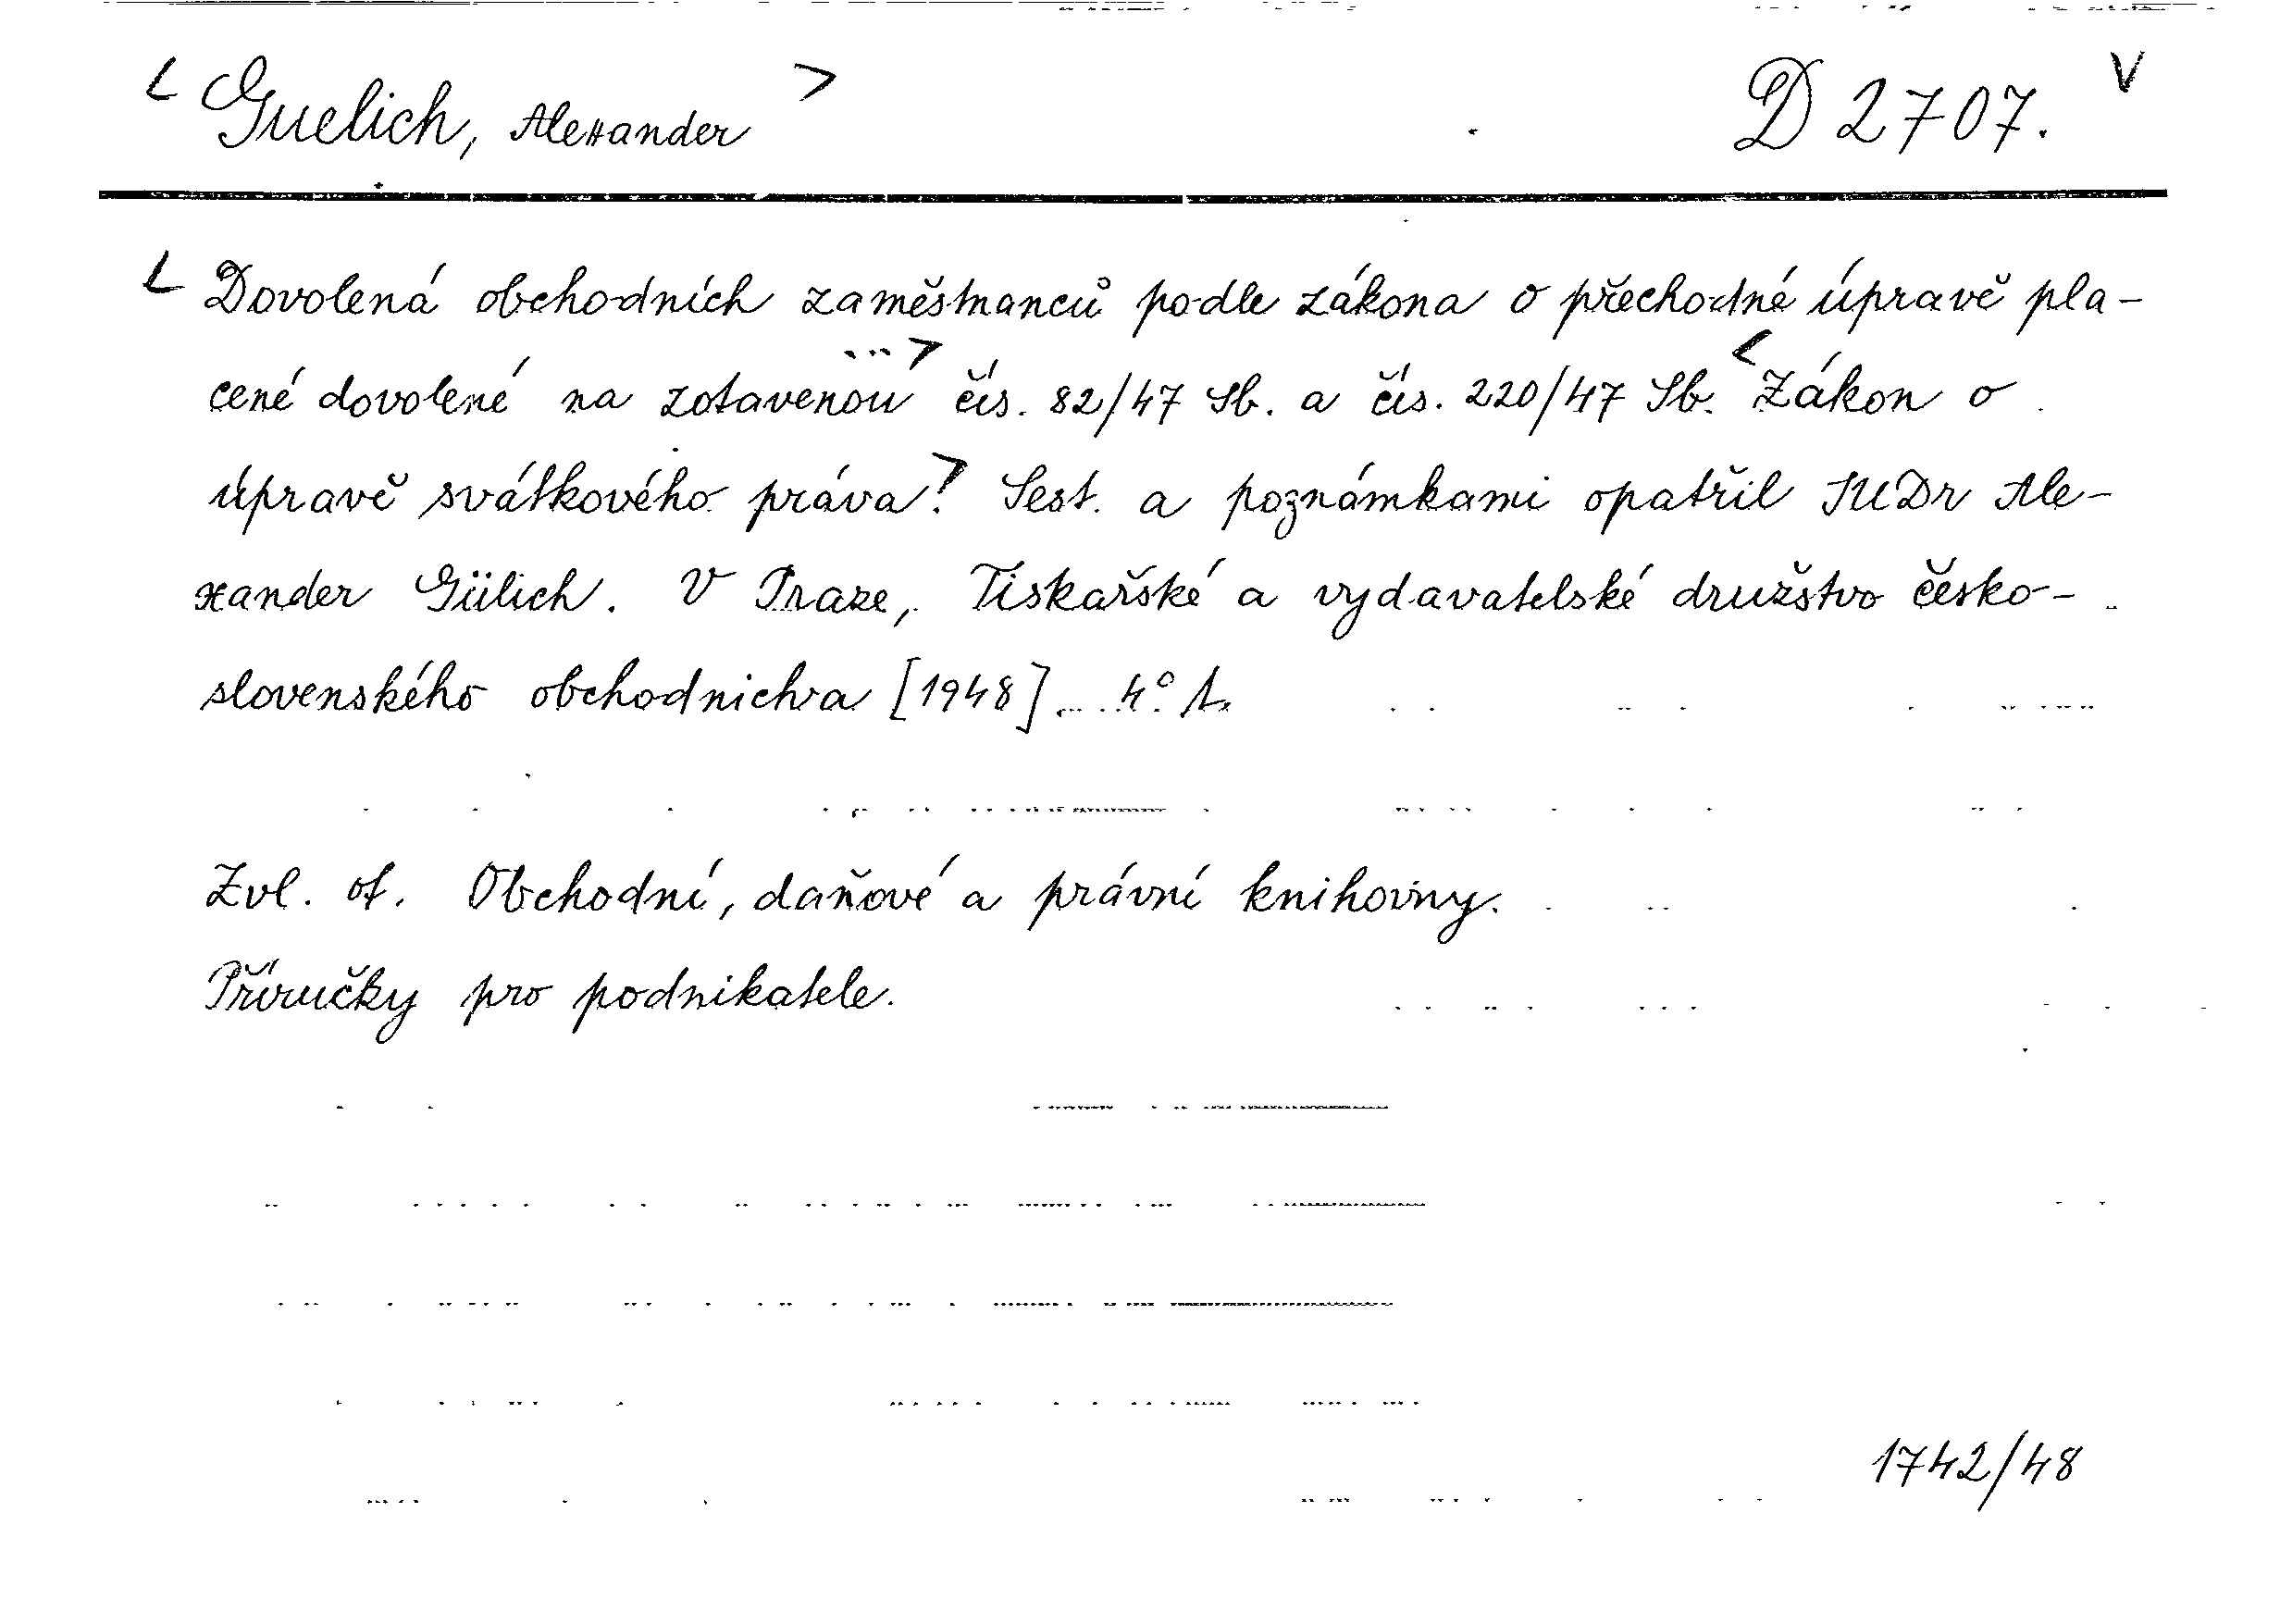 < Guelich, Alexander > D 2707. V
< Dovolená obchodních zaměstnanců podle zákona o přechodné úpravě pla-
cené dovolené na zotavenou ...> čís. 82/47 Sb. a čís. 220/47 Sb. < Zákon o
úpravě svátkového práva.> Sest. a poznámkami opatřil JUDr Ale-
xander Gülich. V Praze, Tiskařské a vydavatelské družstvo česko-
slovenského obchodnictva [1948] 4°
Zvl. ot. Obchodní, daňové a právní knihovny.
Příručky pro podnikatele.
1742/48